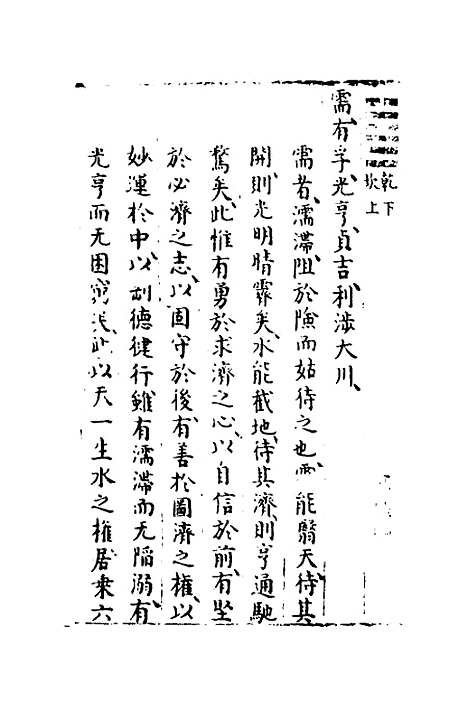 乾下
坎上
需有孚光亨貞吉利涉大川
需者濡滯阻於險而姑待之也雨能翳天待其
開則光明晴霽矣水能截地待其濟則亨通馳
騖矣此惟有勇於求濟之心以自信於前有坚
於必濟之志以固守於後有善於圖濟之權以
妙運於中以剴德健行雖有濡滯而无陷溺有
光亨而无困窮 此以天一生水之權居乗六